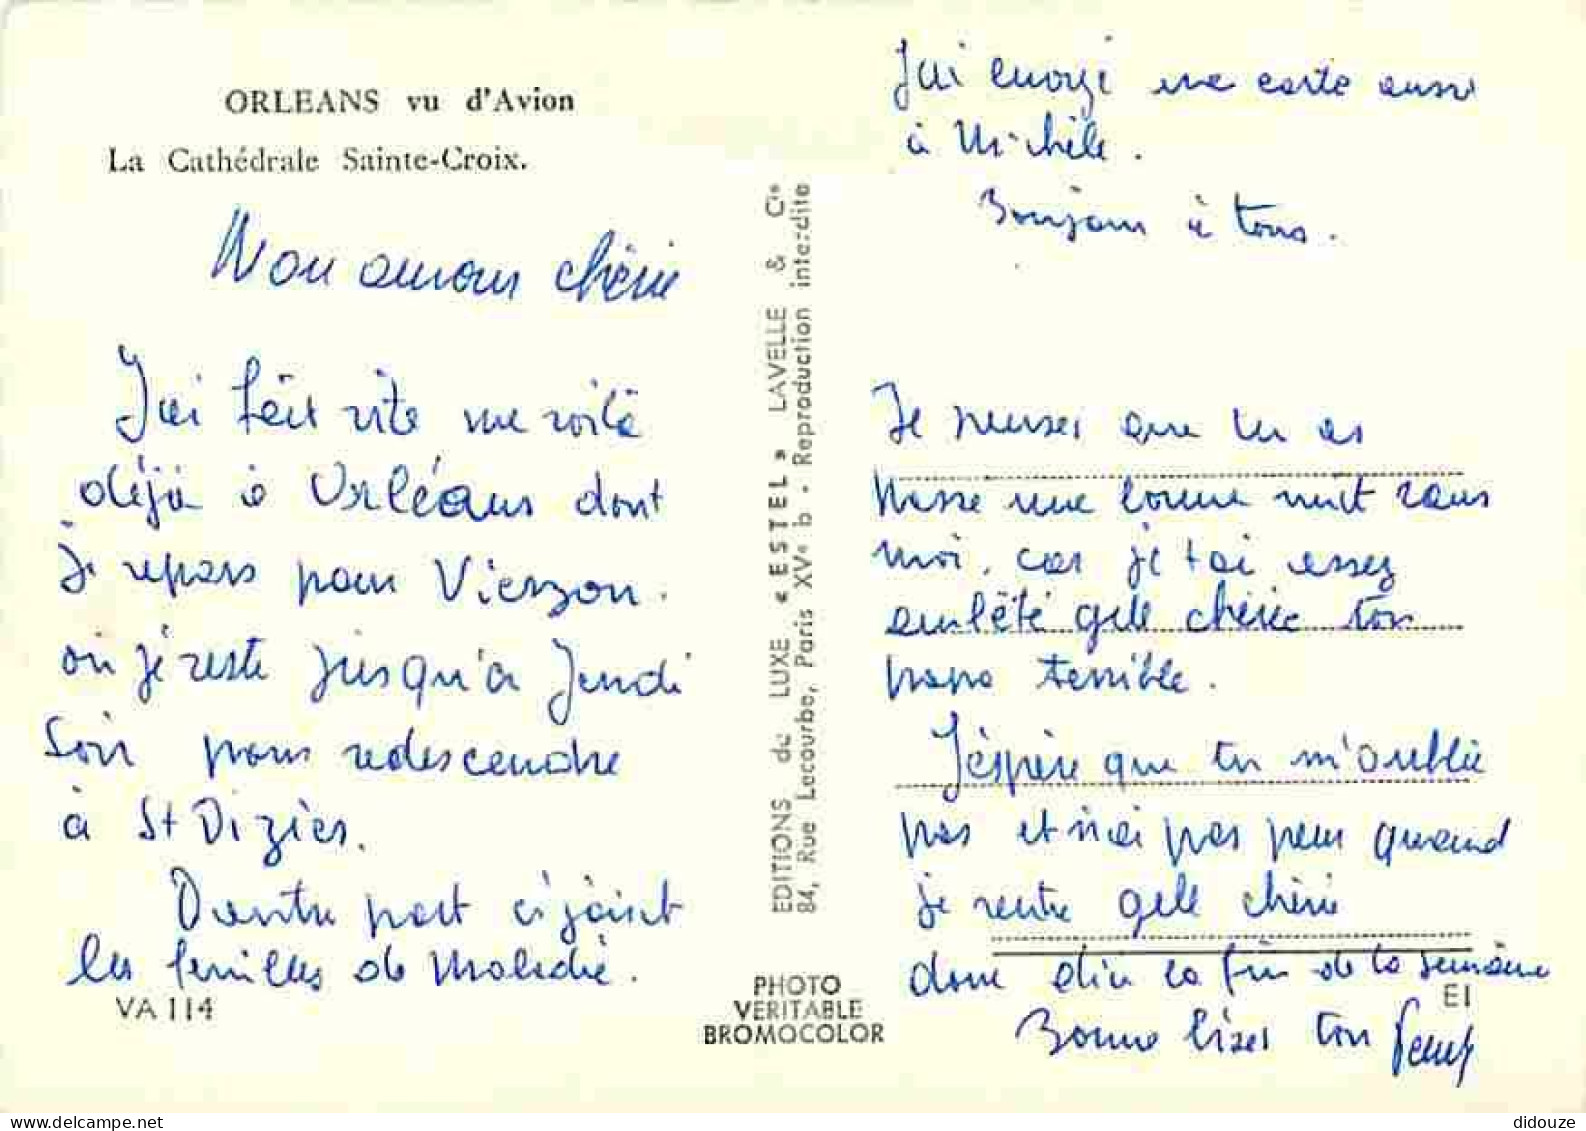 ORLEANS vu d'Avion
La Cathédrale Sainte-Croix.
Mon amour chérie
J'ai fait vite me voilà
déjà à Orléans dont
je repars pour Vierzon.
où je reste jusqu'à Jeudi
Soir pour redescendre
à St Dizier.
D'autre part ci joint
les feuilles de Maladie.
VA 114
EDITIONS de LUXE « ESTEL » LAVELLE & Cie
84, Rue Lecourbe, Paris XVe b - Reproduction interdite
PHOTO
VERITABLE
BROMOCOLOR
J'ai envoyé une carte aussi
à Michèle.
Bonjour à tous.
Je penses que tu as
passe une bonne nuit sans
moi, car je t'ai assez
chérie ton
papa terrible.
J'éspère que tu m'oublie
pas et n'ai pas peur quand
je rentre chérie
donc la fin de la semaine
EI
Bonne bises ton
didouze